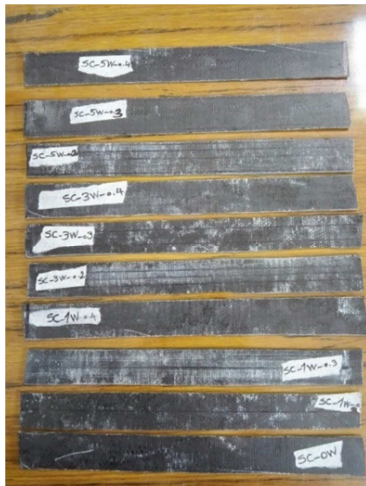 SC-5W-0.4
SC-5W-0.3
SC-5W-0.2
SC-3W-0.4
SC-3W-0.3
SC-3W-0.2
SC-1W-0.4
SC-1W-0.3
SC-1W-0
SC-0W